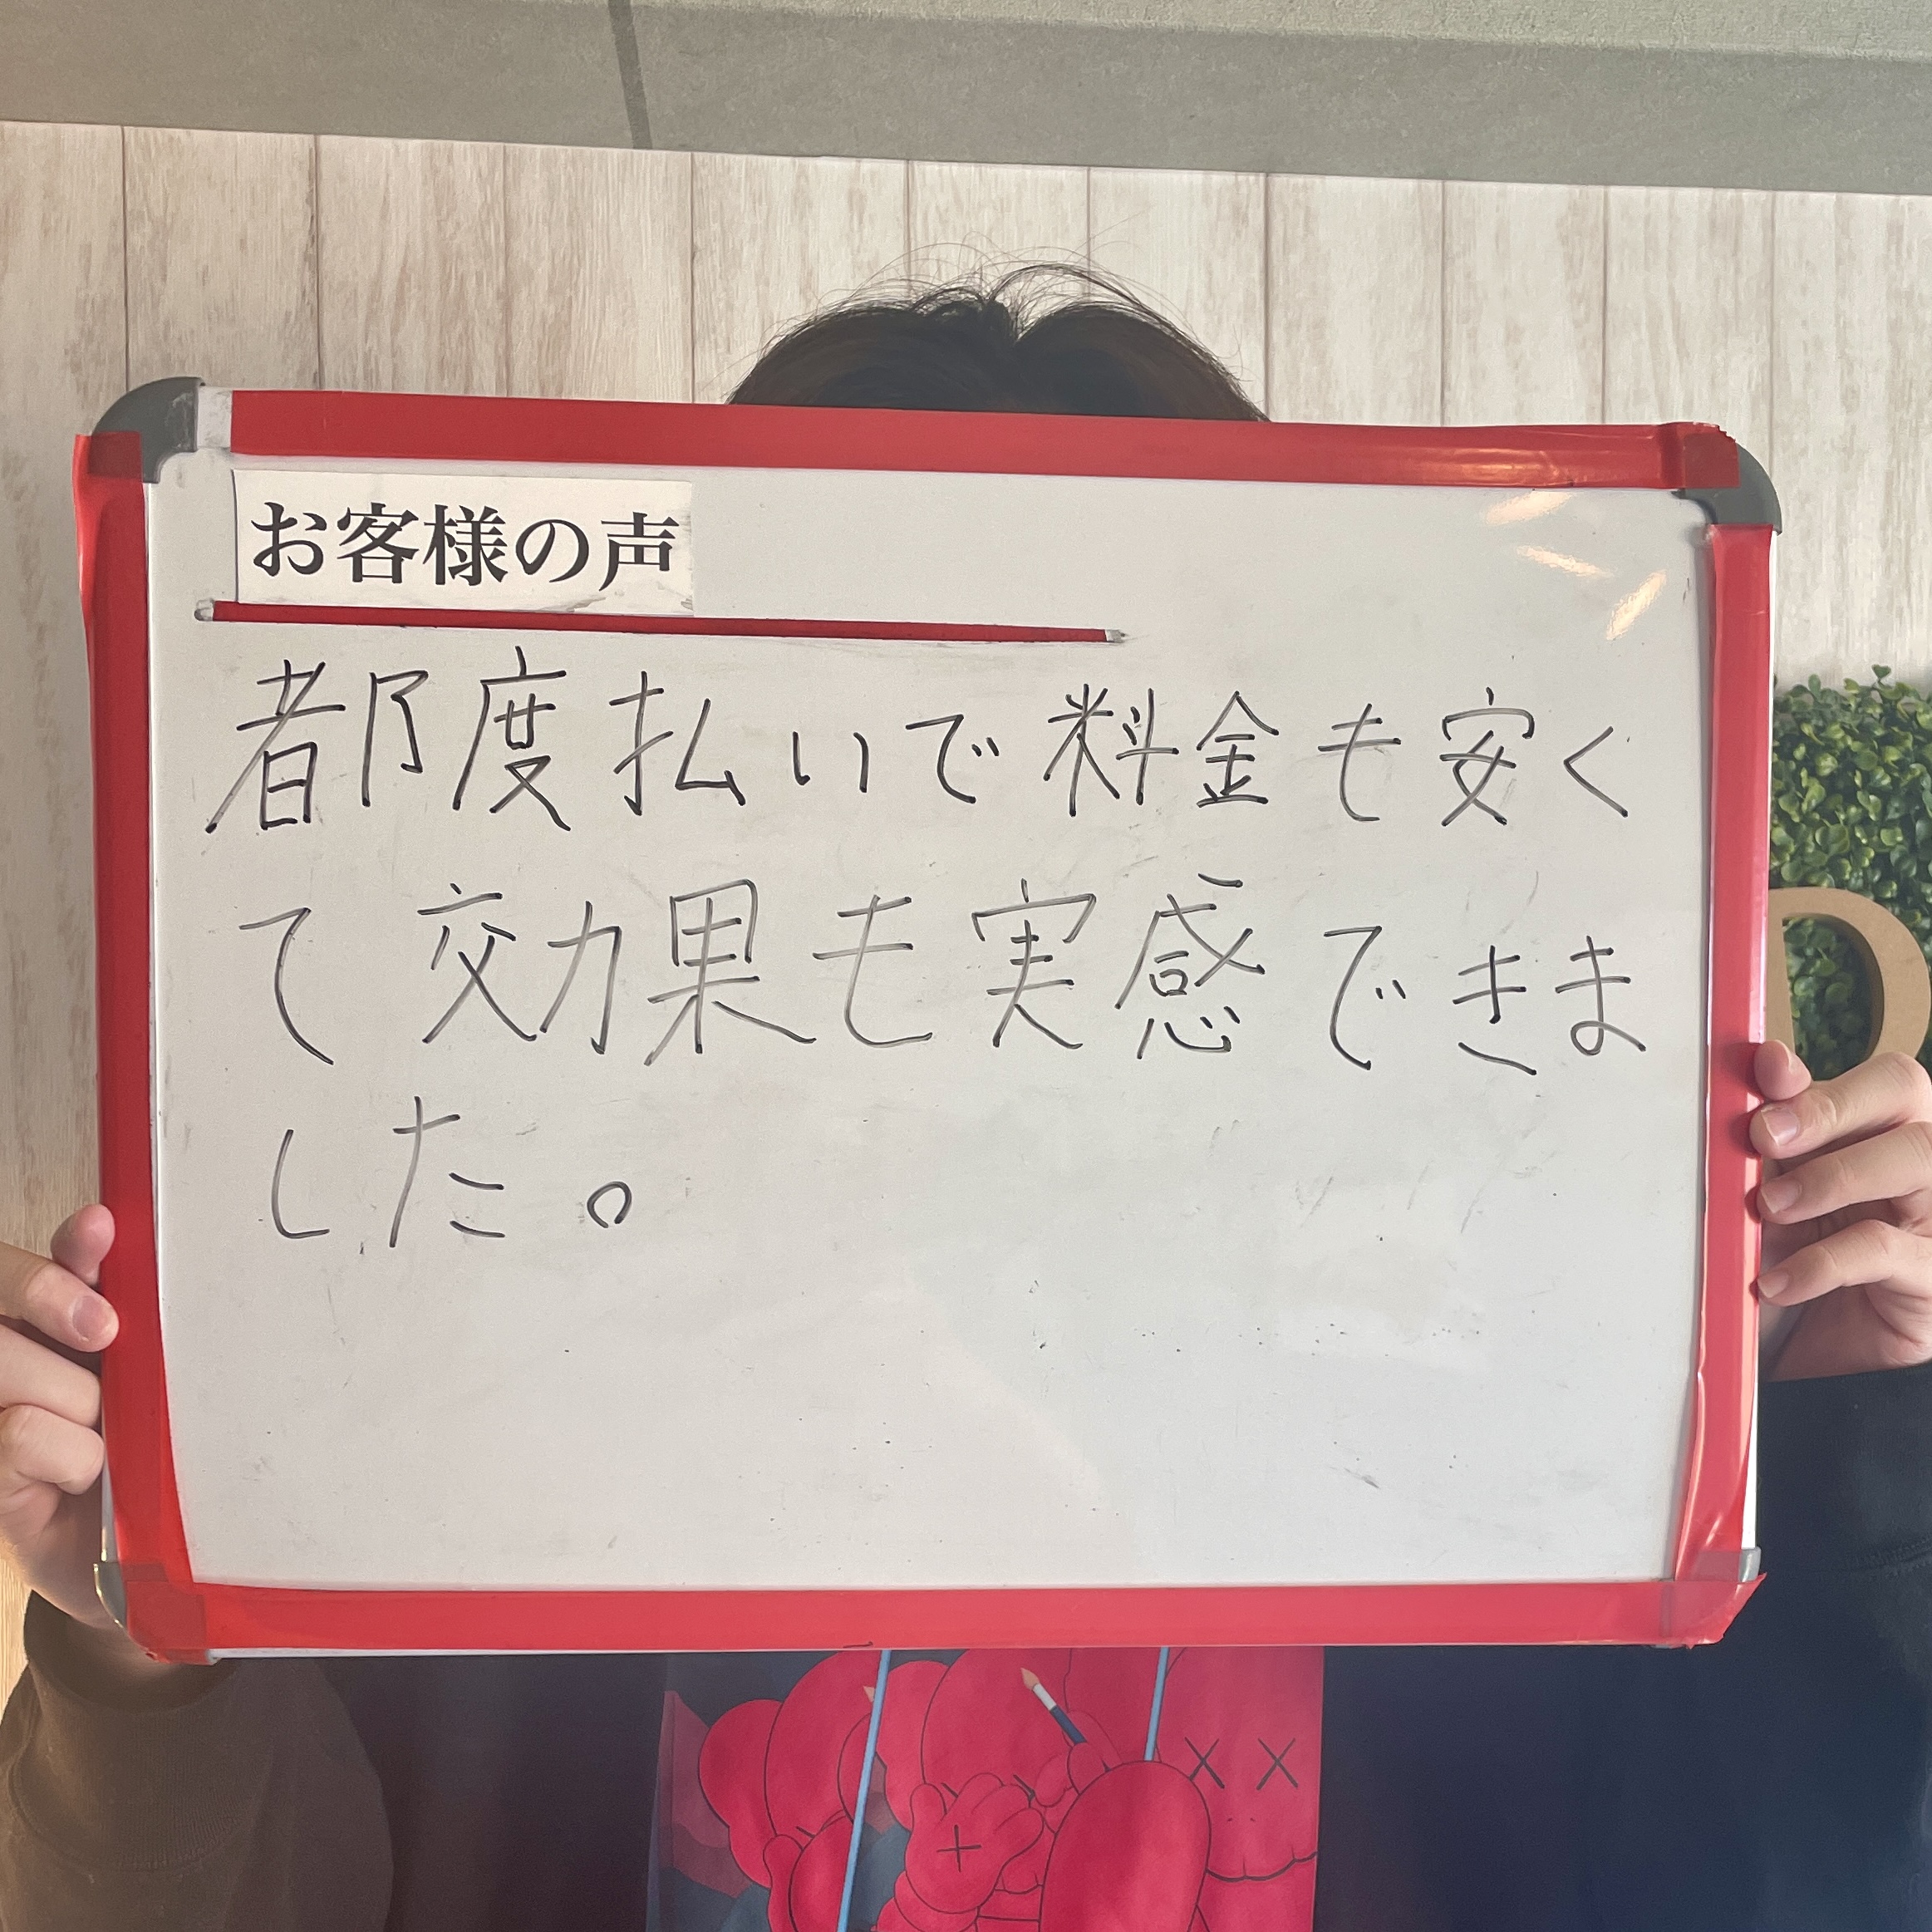 お客様の声
都度払いで料金も安く
て効果も実感できま
した。